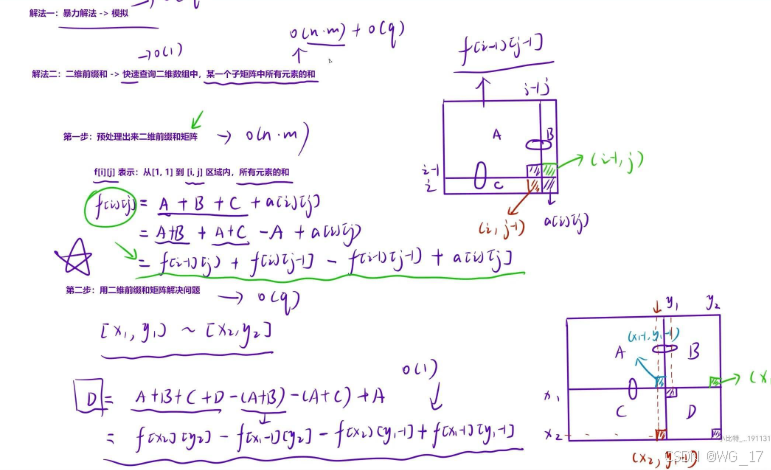 解法一：暴力解法 -> 模拟
O(n·m) + O(q)
→ O(1)
解法二：二维前缀和 -> 快速查询二维数组中，某一个子矩阵中所有元素的和
f[i-1][j-1]
j-1 j
A B
第一步：预处理出来二维前缀和矩阵 → O(n·m)
(i-1, j)
i-1
i
C
f[i][j] 表示：从[1, 1] 到 [i, j] 区域内，所有元素的和
f[i][j] = A + B + C + a[i][j]
(i, j-1) a[i][j]
= A+B + A+C - A + a[i][j]
= f[i-1][j] + f[i][j-1] - f[i-1][j-1] + a[i][j]
第二步：用二维前缀和矩阵解决问题 → O(q)
y₁ y₂
[x₁, y₁] ~ [x₂, y₂]
(x₁-1, y₁-1)
A B
O(1)
(x₁
x₁
C D
D = A+B+C+D - (A+B) - (A+C) + A
x₂
= f[x₂][y₂] - f[x₁-1][y₂] - f[x₂][y₁-1] + f[x₁-1][y₁-1]
191131
(x₂, y₁-1)
CSDN @WG_17